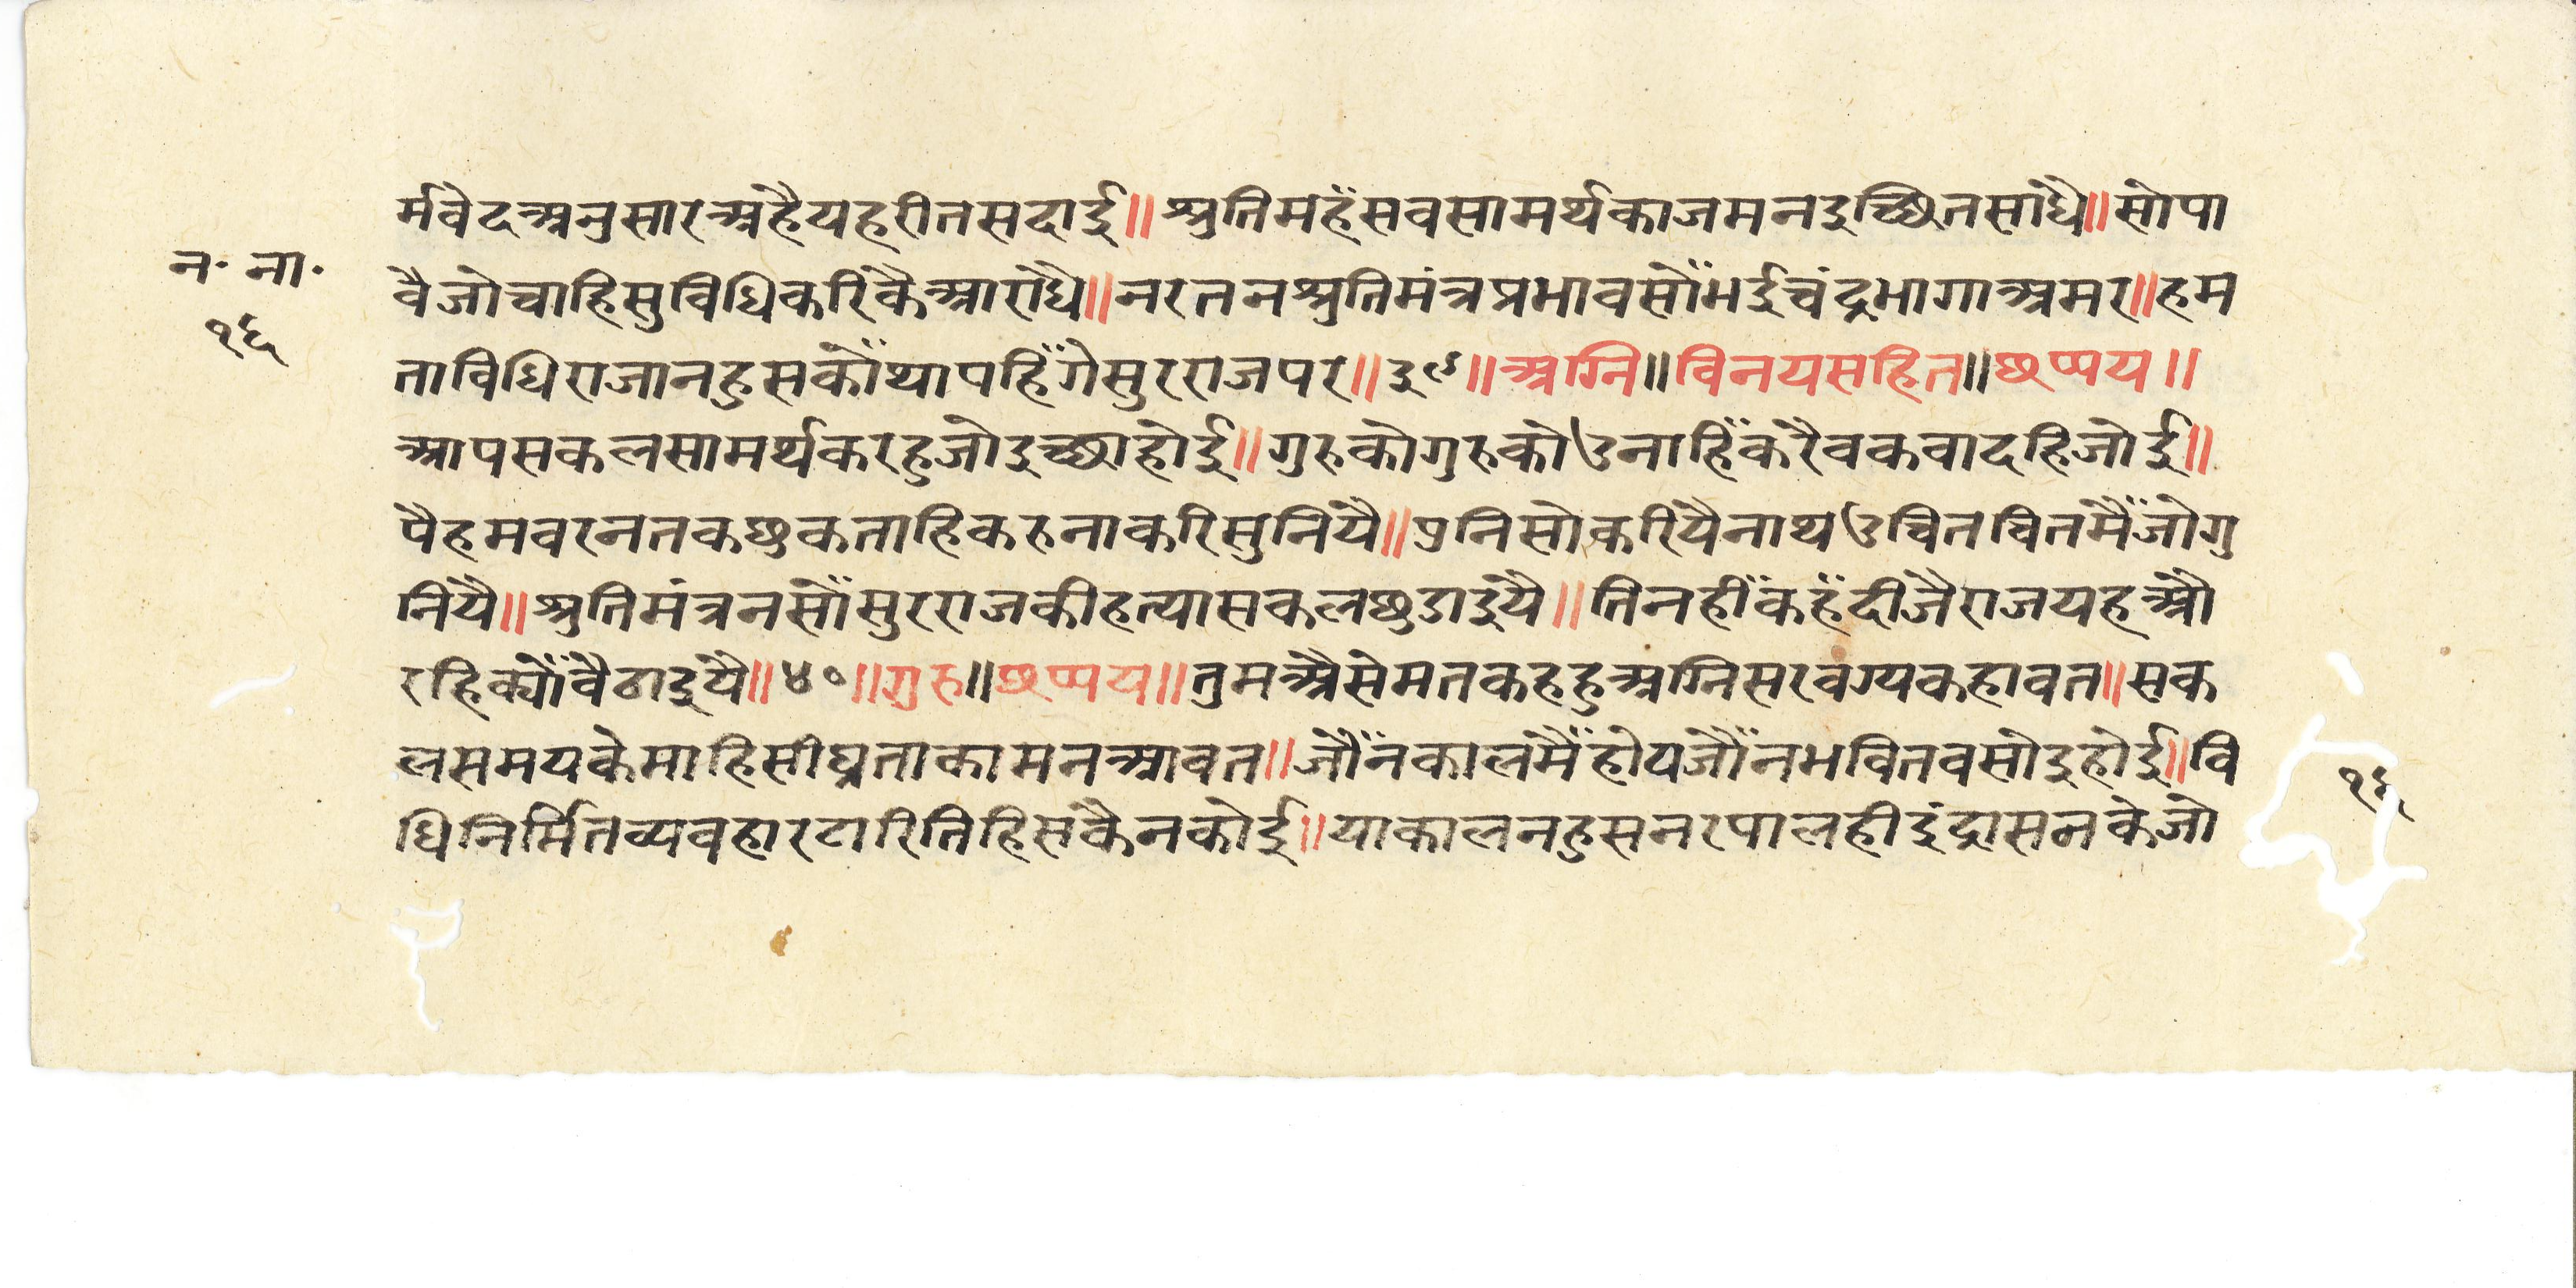 र्मवेदअनुसारअहैयहरीतसदाई॥श्रुतिमहँसवसामर्थकाजमनइच्छितसाधै॥सोपा
न॰ ना॰
वैजोचाहिसुविधिकरिकैआराधै॥नरतनश्रुतिमंत्रप्रभावसोँभईचंद्रभागाअमर॥हम
१६
ताविधिराजानहुसकोँथापहिँगेसुरराजपर॥३९॥अग्नि॥विनयसहित॥छप्पय॥
आपसकलसामर्थकरहुजोइच्छाहोई॥गुरुकोगुरुकोउनाहिँकरैवकवादहिजोई॥
पैहमवरनतकछुकताहिकरुनाकरिसुनियै॥पुनिसोकरियैनाथउचितचितमैँजोगु
नियै॥श्रुतिमंत्रनसोँसुरराजकीहत्यासकलछुडाइयै॥तिनहीँकहँदीजैराजयहऔ
रहिक्योँवैठाइयै॥४०॥गुरु॥छप्पय॥तुमऔसेमतकहहुअग्निसरवग्यकहावत॥सक
लसमयकेमाहिसीघ्रताकामनआवत॥जौँनकालमैँहोयजौँनभवितवसोइहोई॥वि
१६
धिनिर्मितव्यवहारटारितिहिसकैनकोई॥याकालनहुसनरपालहीइंद्रासनकेजो